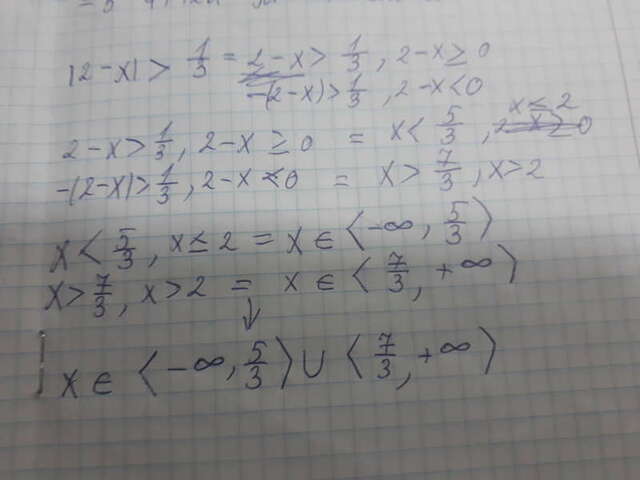 |2-x| > 1/3 = 2-x > 1/3, 2-x ≥ 0
-(2-x) > 1/3, 2-x < 0
2-x > 1/3, 2-x ≥ 0 = x < 5/3, x ≤ 2
-(2-x) > 1/3, 2-x < 0 = x > 7/3, x > 2
x < 5/3, x ≤ 2 = x ∈ ⟨-∞, 5/3⟩
x > 7/3, x > 2 = x ∈ ⟨7/3, +∞⟩
↓
x ∈ ⟨-∞, 5/3⟩ ∪ ⟨7/3, +∞⟩